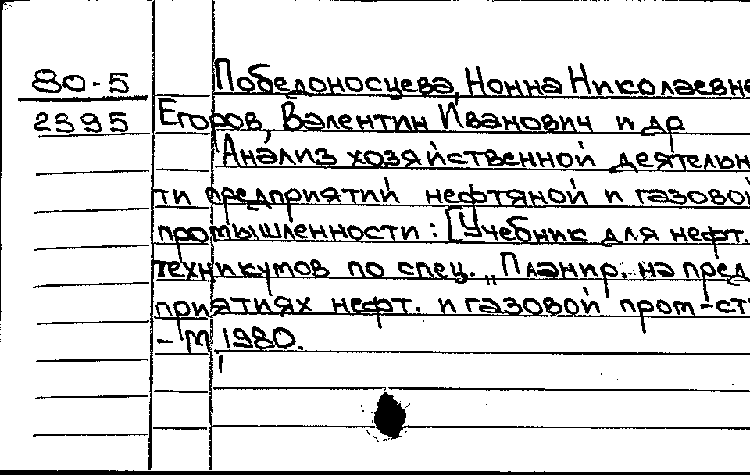 80-5
2395
Победоносцева, Нонна Николаевна
Егоров, Валентин Иванович и др
Анализ хозяйственной деятельн
ти предприятий нефтяной и газовой
промышленности: [Учебник для нефт.
техникумов по спец. "Планир. на пред
приятиях нефт. и газовой пром-ст
- М 1980.